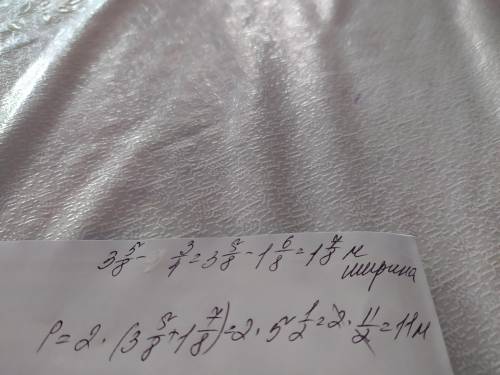 3 5/8 - 3/4 = 3 5/8 - 1 6/8 = 1 7/8 м
ширина
P = 2 · (3 5/8 + 1 7/8) = 2 · 5 1/2 = 2 · 11/2 = 11 м